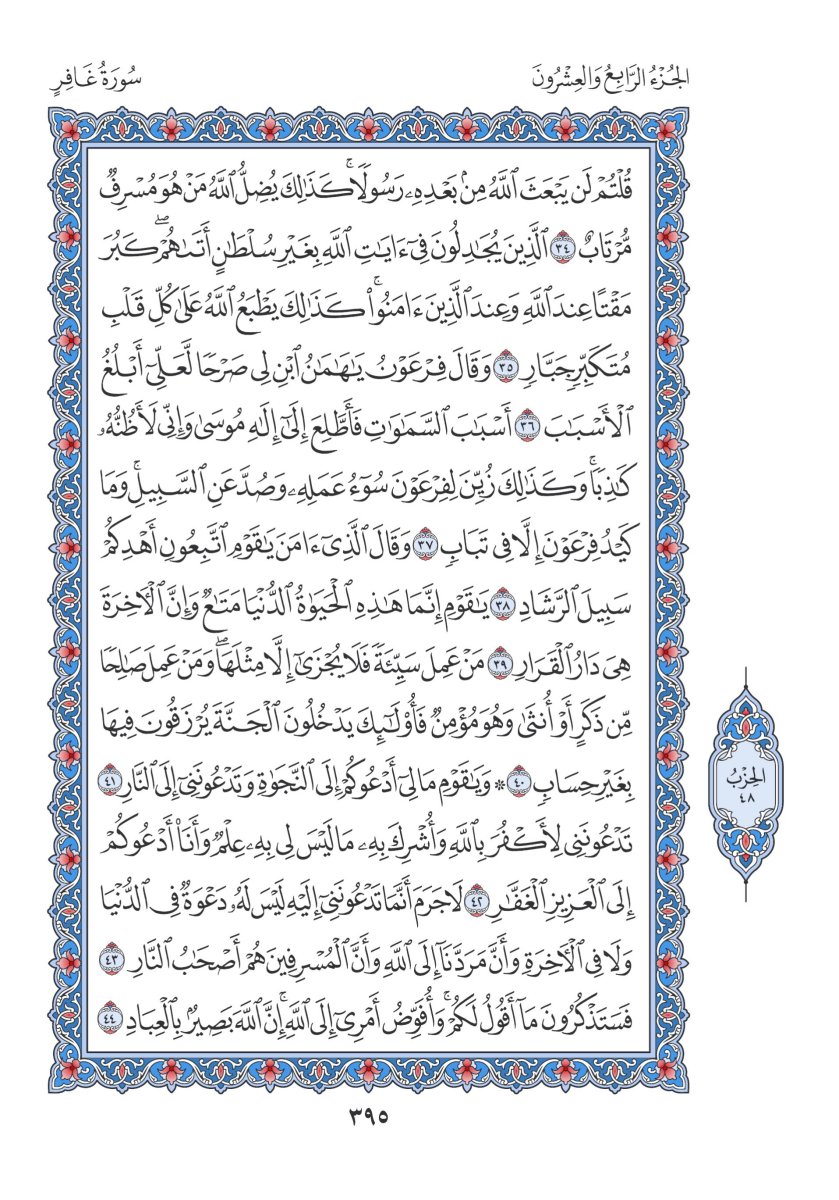 الجُزْءُ الرَّابِعُ وَالعِشْرُونَ
سُورَةُ غَافِرٍ
قُلْتُمْ لَن يَبْعَثَ ٱللَّهُ مِنۢ بَعْدِهِۦ رَسُولٗاۚ كَذَٰلِكَ يُضِلُّ ٱللَّهُ مَنْ هُوَ مُسْرِفٞ
مُّرْتَابٌ ٣٤ ٱلَّذِينَ يُجَٰدِلُونَ فِيٓ ءَايَٰتِ ٱللَّهِ بِغَيْرِ سُلْطَٰنٍ أَتَىٰهُمْۖ كَبُرَ
مَقْتًا عِندَ ٱللَّهِ وَعِندَ ٱلَّذِينَ ءَامَنُواْۚ كَذَٰلِكَ يَطْبَعُ ٱللَّهُ عَلَىٰ كُلِّ قَلْبِ
مُتَكَبِّرٖ جَبَّارٖ ٣٥ وَقَالَ فِرْعَوْنُ يَٰهَٰمَٰنُ ٱبْنِ لِي صَرْحٗا لَّعَلِّيٓ أَبْلُغُ
ٱلْأَسْبَٰبَ ٣٦ أَسْبَٰبَ ٱلسَّمَٰوَٰتِ فَأَطَّلِعَ إِلَىٰٓ إِلَٰهِ مُوسَىٰ وَإِنِّي لَأَظُنُّهُۥ
كَٰذِبٗاۚ وَكَذَٰلِكَ زُيِّنَ لِفِرْعَوْنَ سُوٓءُ عَمَلِهِۦ وَصُدَّ عَنِ ٱلسَّبِيلِۚ وَمَا
كَيْدُ فِرْعَوْنَ إِلَّا فِي تَبَابٖ ٣٧ وَقَالَ ٱلَّذِيٓ ءَامَنَ يَٰقَوْمِ ٱتَّبِعُونِ أَهْدِكُمْ
سَبِيلَ ٱلرَّشَادِ ٣٨ يَٰقَوْمِ إِنَّمَا هَٰذِهِ ٱلْحَيَوٰةُ ٱلدُّنْيَا مَتَٰعٞ وَإِنَّ ٱلْأٓخِرَةَ
هِيَ دَارُ ٱلْقَرَارِ ٣٩ مَنْ عَمِلَ سَيِّئَةٗ فَلَا يُجْزَىٰٓ إِلَّا مِثْلَهَاۖ وَمَنْ عَمِلَ صَٰلِحٗا
مِّن ذَكَرٍ أَوْ أُنثَىٰ وَهُوَ مُؤْمِنٞ فَأُوْلَٰٓئِكَ يَدْخُلُونَ ٱلْجَنَّةَ يُرْزَقُونَ فِيهَا
بِغَيْرِ حِسَابٖ ٤٠ ۞ وَيَٰقَوْمِ مَا لِيٓ أَدْعُوكُمْ إِلَى ٱلنَّجَوٰةِ وَتَدْعُونَنِيٓ إِلَى ٱلنَّارِ ٤١
تَدْعُونَنِي لِأَكْفُرَ بِٱللَّهِ وَأُشْرِكَ بِهِۦ مَا لَيْسَ لِي بِهِۦ عِلْمٞ وَأَنَا۠ أَدْعُوكُمْ
إِلَى ٱلْعَزِيزِ ٱلْغَفَّٰرِ ٤٢ لَا جَرَمَ أَنَّمَا تَدْعُونَنِيٓ إِلَيْهِ لَيْسَ لَهُۥ دَعْوَةٞ فِي ٱلدُّنْيَا
وَلَا فِي ٱلْأٓخِرَةِ وَأَنَّ مَرَدَّنَآ إِلَى ٱللَّهِ وَأَنَّ ٱلْمُسْرِفِينَ هُمْ أَصْحَٰبُ ٱلنَّارِ ٤٣
فَسَتَذْكُرُونَ مَآ أَقُولُ لَكُمْۚ وَأُفَوِّضُ أَمْرِيٓ إِلَى ٱللَّهِۚ إِنَّ ٱللَّهَ بَصِيرُۢ بِٱلْعِبَادِ ٤٤
الحِزْبُ
٤٨
٣٩٥